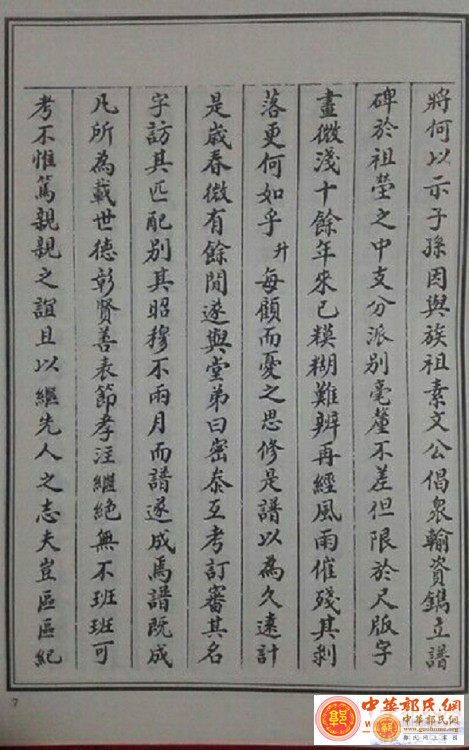 將何以示子孫因與族祖素文公倡眾輸資鐫立譜
碑於祖塋之中支分派別毫釐不差但限於尺版字
畫微淺十餘年來已糢糊難辨再經風雨催殘其剝
落更何如乎升每顧而憂之思修是譜以為久遠計
是歲春微有餘閒遂與堂弟曰密叅互考訂審其名
字訪其匹配別其昭穆不兩月而譜遂成焉譜既成
凡所為載世德彰賢善表節孝注繼絕無不班班可
考不惟篤親親之誼且以繼先人之志夫豈區區紀
7
中華郭氏網
中華郭氏網
www.guohome.org
郭氏網上家園